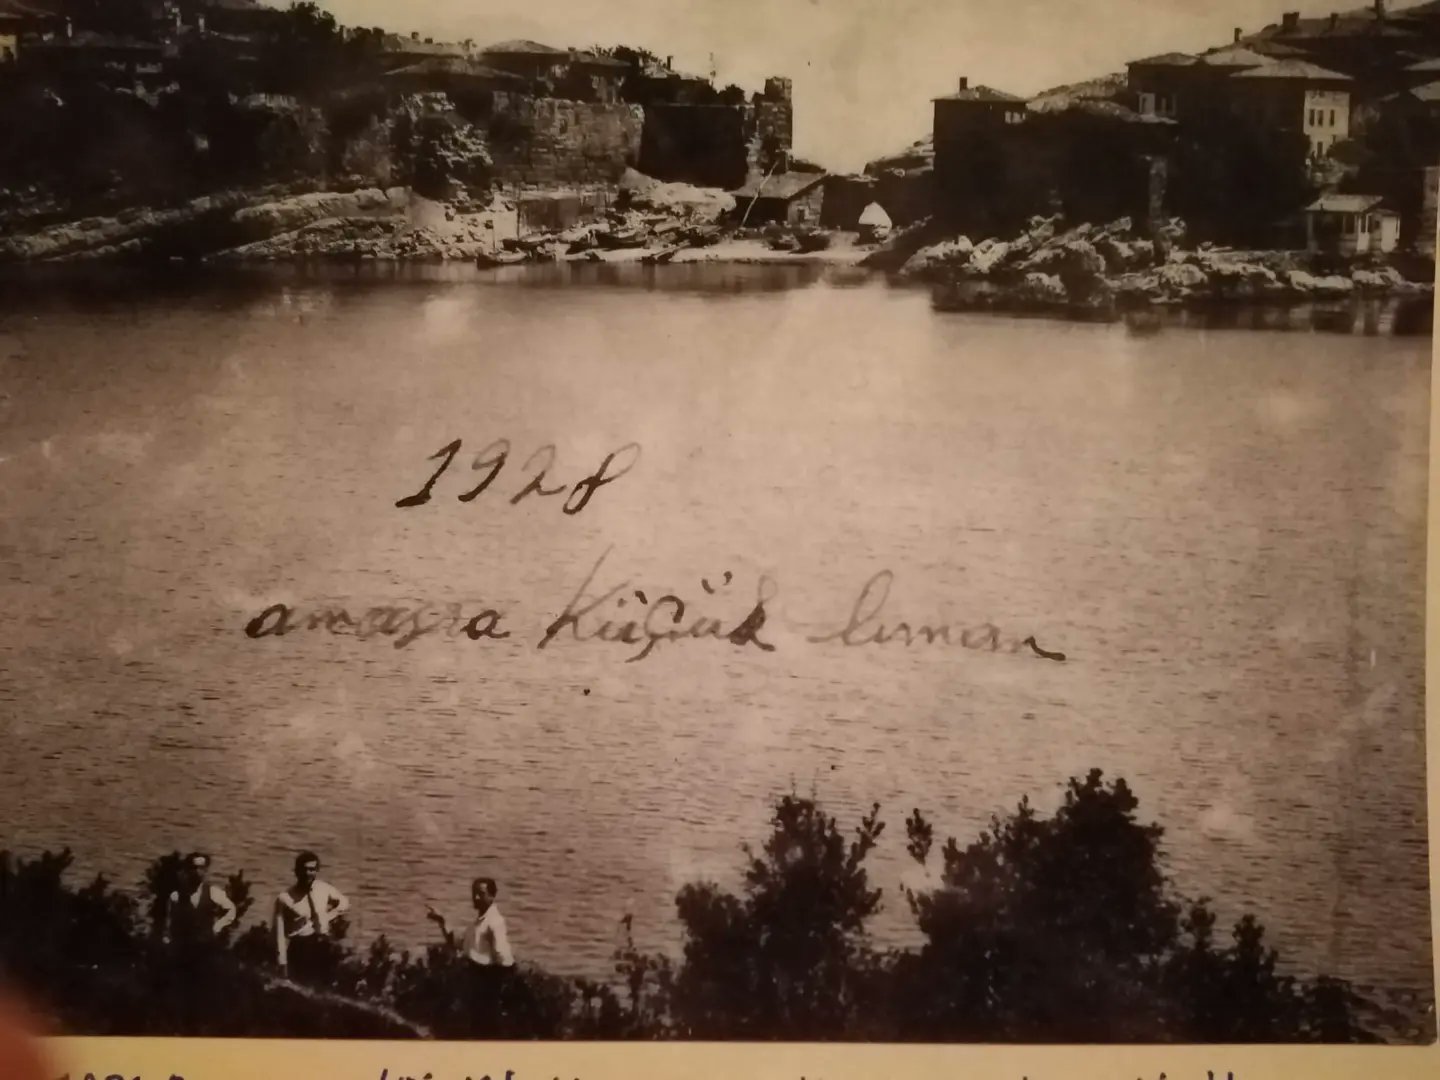 1928
amasra Küçük liman